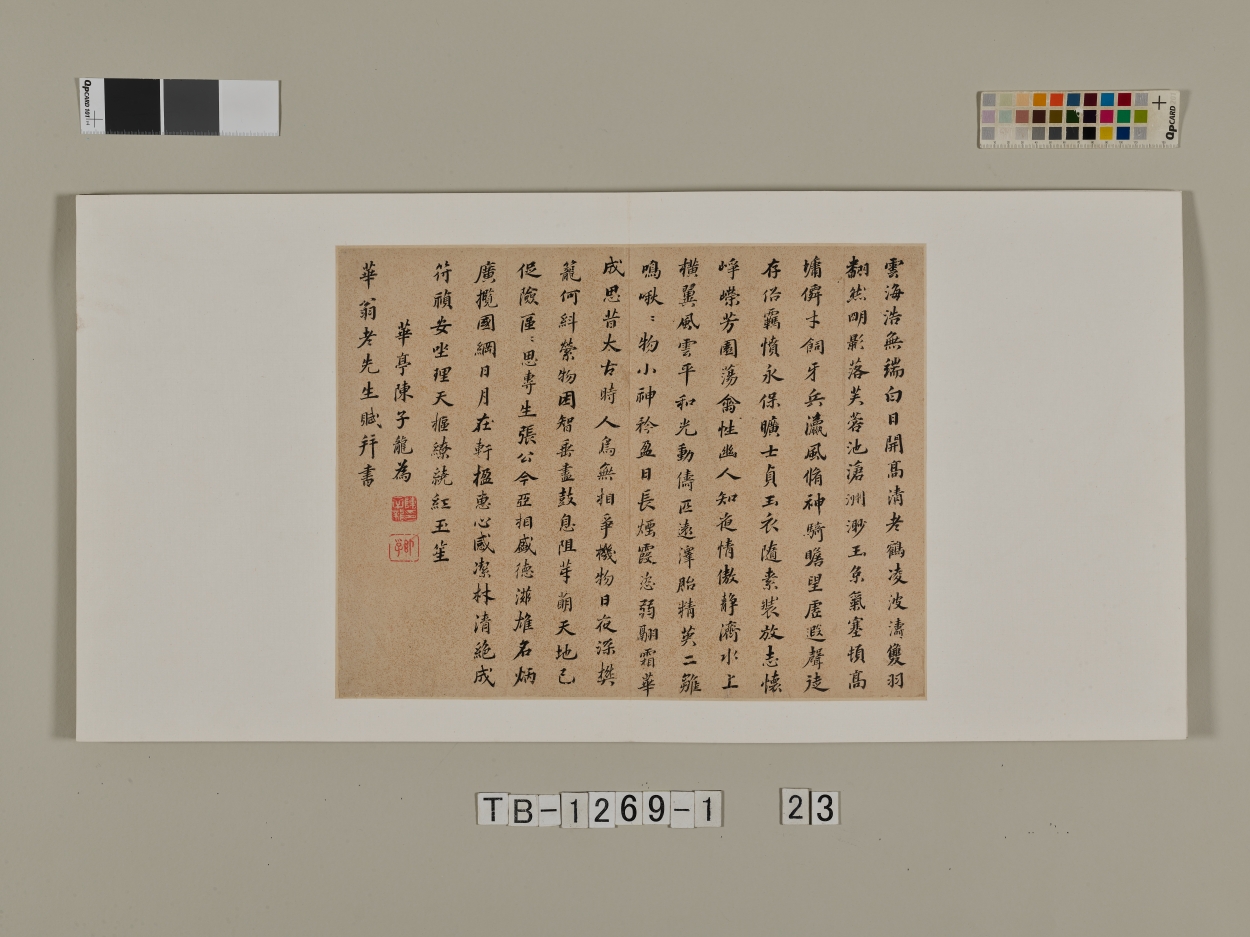 雲海浩無端白日開高清老鶴凌波濤雙羽
翻然明影落芙蓉池滄洲渺玉京氣塞頓高
墉僻才飼牙兵瀛風脩神騎瞻望虛遐聲徒
存俗羈憤永保曠士貞玉衣隨素裝放志懷
崢嶸芳園蕩禽性幽人知夜情傲靜濟水上
橫翼風雲平和光動儔匹遠澤胎精英二雛
鳴啾〻物小神矜盈日長煙霞恣弱翮霜華
成思昔太古時人鳥無相爭機物日夜深樊
籠何糾縈物困智無盡鼓息阻芽萌天地已
促險區〻思專生張公今亞相盛德滋雄名炳
廣攬國綱日月在軒楹惠心感潔林清絕成
符禎安坐理天樞繚繞紅玉笙
華亭陳子龍為
華翁老先生賦并書
QPCARD 101
QPCARD
TB-1269-1 23